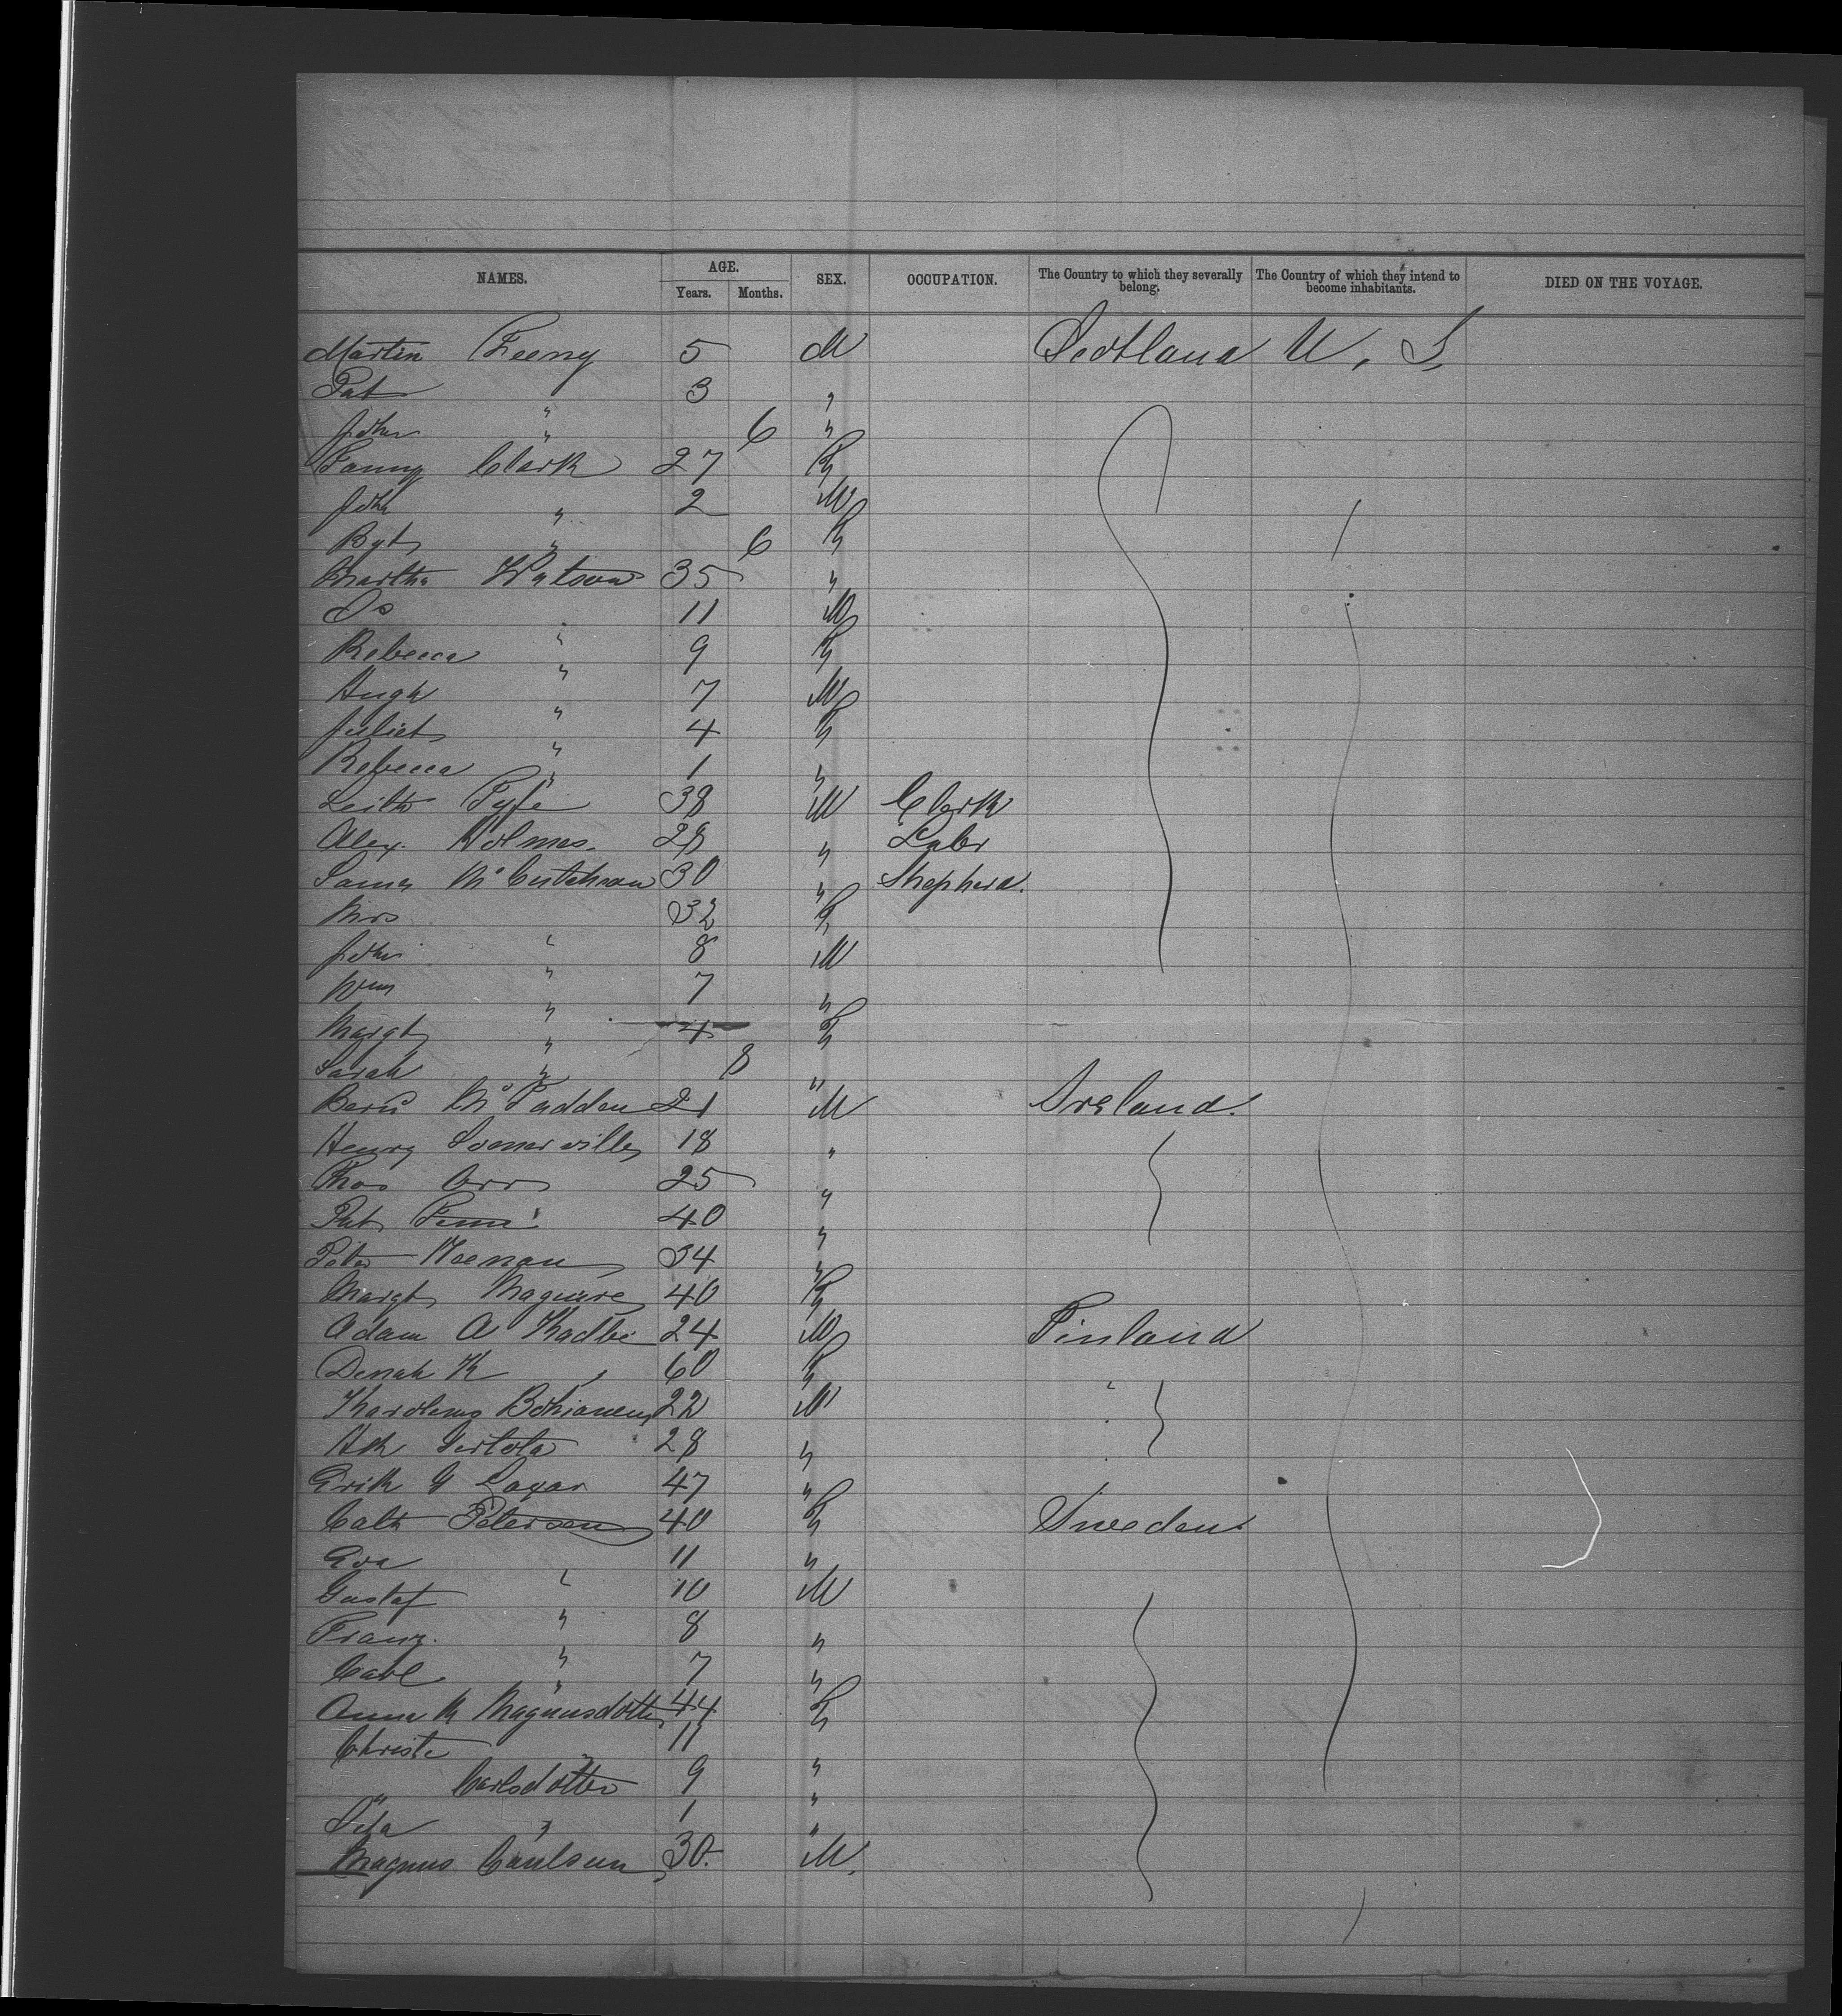 NAMES. AGE. SEX. OCCUPATION. The Country to which they severally belong. The Country of which they intend to become inhabitants. DIED ON THE VOYAGE.
Years. Months.
Martin Feeny 5 M Scotland U. S.
Pat " 3 "
John " 6 "
Fanny Clark 27 F
John " 2 M
Bgt " 6 F
Martha Watson 35 "
Do " 11 M
Rebecca " 9 F
Hugh " 7 M
Juliet " 4 F
Rebecca " 1 "
Leith Fyfe 38 M Clerk
Alex. Holmes. 28 " Labr
James McCutcheon 30 " Shepherd.
Mrs " 32 F
John " 8 M
Wm " 7 "
Margt " 4 F
Sarah " 8 "
Bern McFadden 21 M Ireland.
Henry Somerville 18 "
Thos Orr 25 "
Pat 40 "
Peter Keenan 34 "
Margt Maguire 40 F
Adam A 24 M Finland
K " 60 F
22 M
28 "
Erik G 47 "
Cath Petersen 40 F Sweden.
Eva " 11 "
Gustaf " 10 M
Franz. " 8 "
Carl " 7 "
Anna M Magnusdotter 44 F
Christe " 11 "
" Carlsdotter 9 "
" 1 "
Magnus Carlsson 30. M.